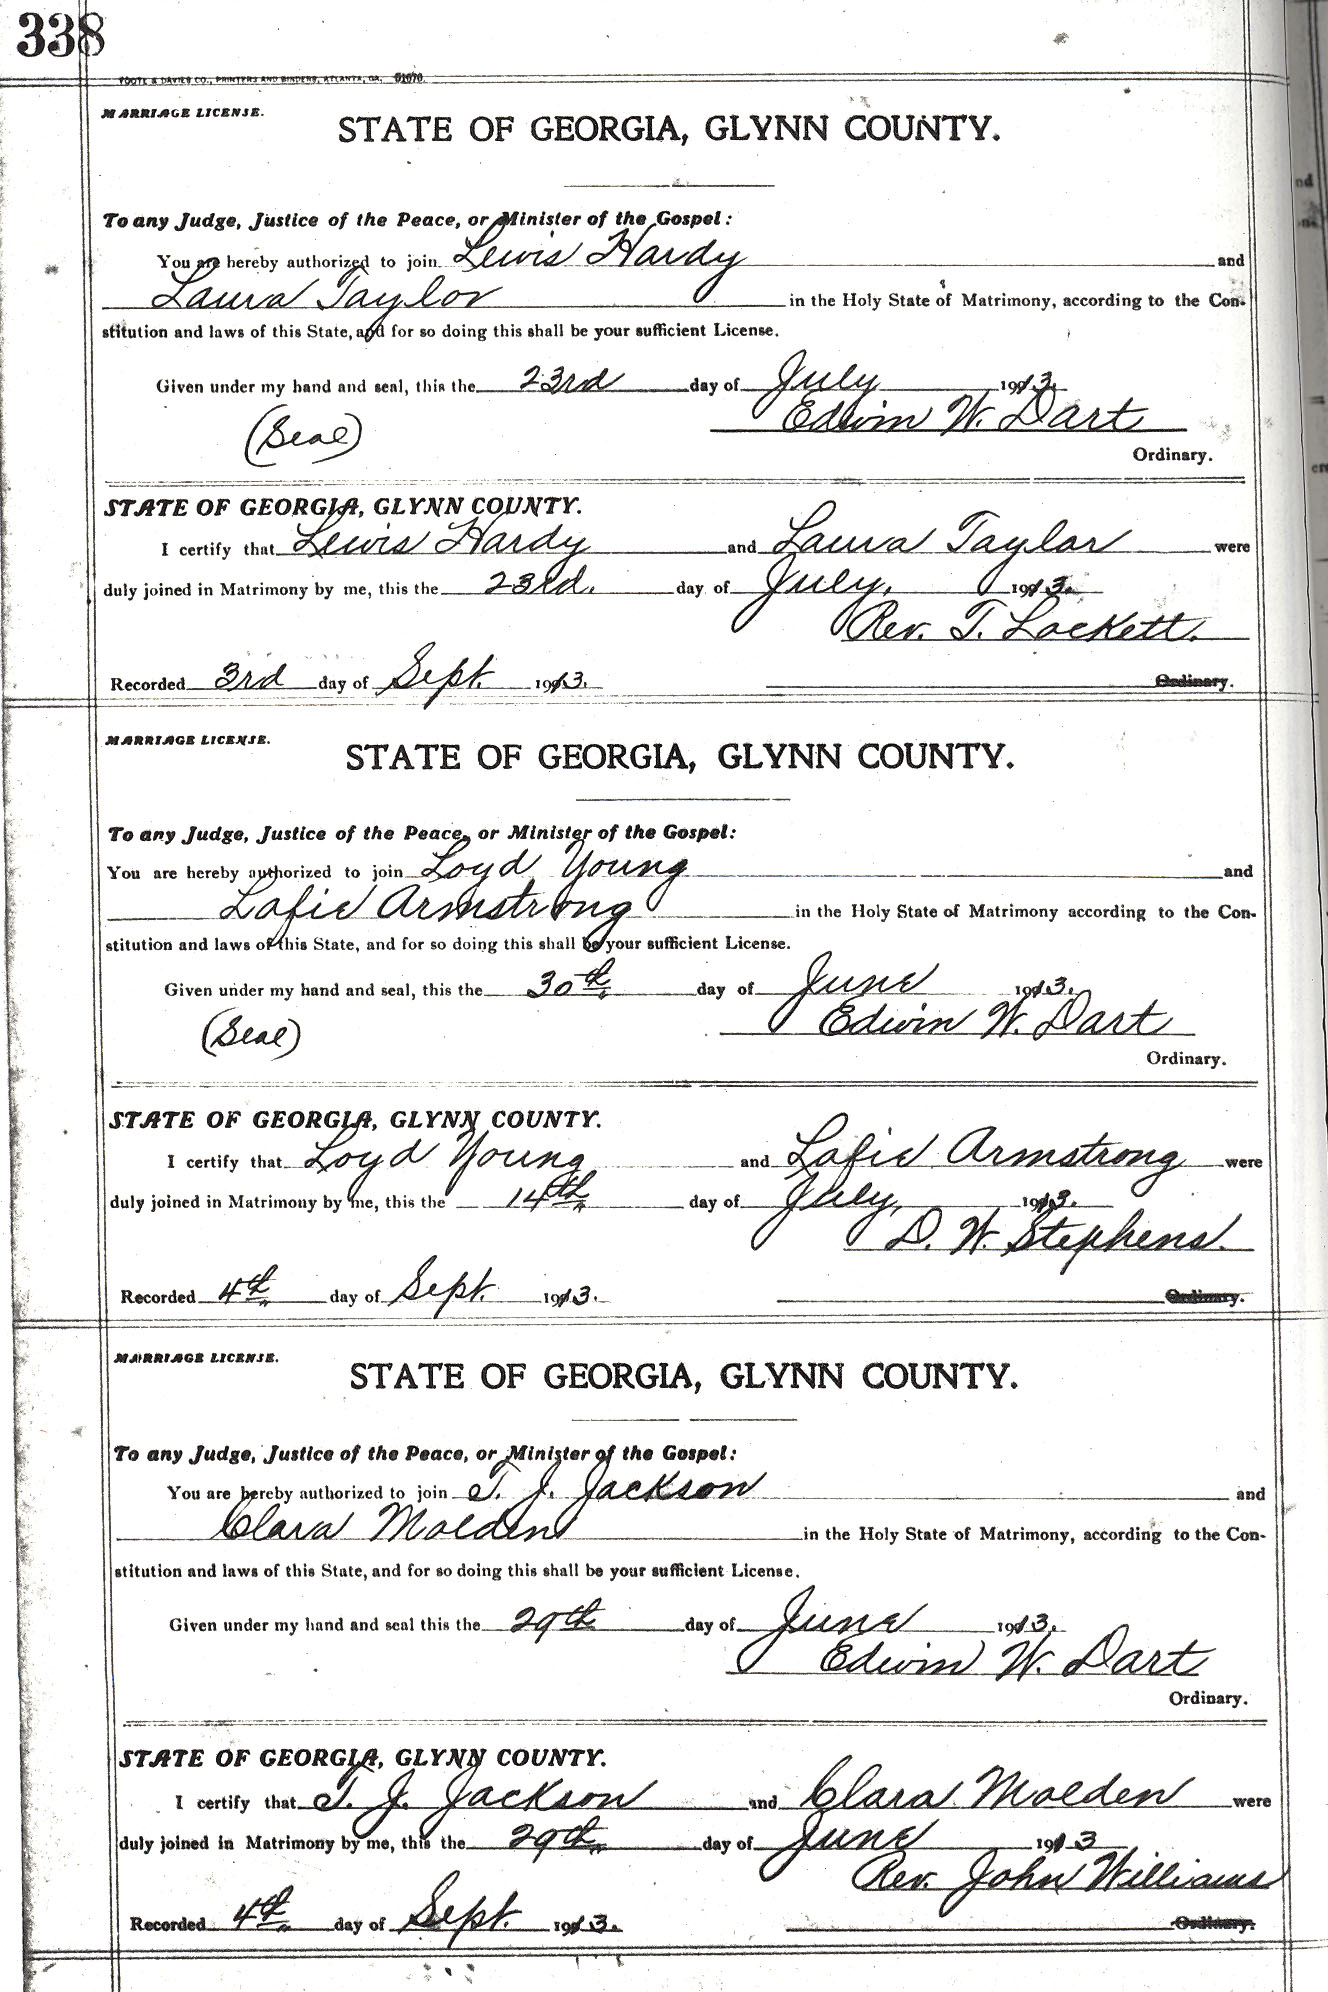 338
FOOTE & DAVIES CO., PRINTERS AND BINDERS, ATLANTA, GA. 51070
MARRIAGE LICENSE.
STATE OF GEORGIA, GLYNN COUNTY.
To any Judge, Justice of the Peace, or Minister of the Gospel:
You are hereby authorized to join Lewis Hardy and
Laura Taylor in the Holy State of Matrimony, according to the Con-
stitution and laws of this State, and for so doing this shall be your sufficient License.
Given under my hand and seal, this the 23rd day of July 1913.
(Seal) Edwin W. Dart
Ordinary.
STATE OF GEORGIA, GLYNN COUNTY.
I certify that Lewis Hardy and Laura Taylor were
duly joined in Matrimony by me, this the 23rd. day of July, 1913.
Rev. T. Lockett.
Recorded 3rd day of Sept. 1913. Ordinary.
MARRIAGE LICENSE.
STATE OF GEORGIA, GLYNN COUNTY.
To any Judge, Justice of the Peace, or Minister of the Gospel:
You are hereby authorized to join Loyd Young and
Lofie Armstrong in the Holy State of Matrimony according to the Con-
stitution and laws of this State, and for so doing this shall be your sufficient License.
Given under my hand and seal, this the 30th day of June 1913.
(Seal) Edwin W. Dart
Ordinary.
STATE OF GEORGIA, GLYNN COUNTY.
I certify that Loyd Young and Lofie Armstrong were
duly joined in Matrimony by me, this the 14th day of July, 1913.
D. W. Stephens.
Recorded 4th day of Sept. 1913. Ordinary.
MARRIAGE LICENSE.
STATE OF GEORGIA, GLYNN COUNTY.
To any Judge, Justice of the Peace, or Minister of the Gospel:
You are hereby authorized to join T. J. Jackson and
Clara Molden in the Holy State of Matrimony, according to the Con-
stitution and laws of this State, and for so doing this shall be your sufficient License.
Given under my hand and seal this the 29th day of June 1913.
Edwin W. Dart
Ordinary.
STATE OF GEORGIA, GLYNN COUNTY.
I certify that T. J. Jackson and Clara Molden were
duly joined in Matrimony by me, this the 29th day of June 1913
Rev. John Williams
Recorded 4th day of Sept. 1913. Ordinary.